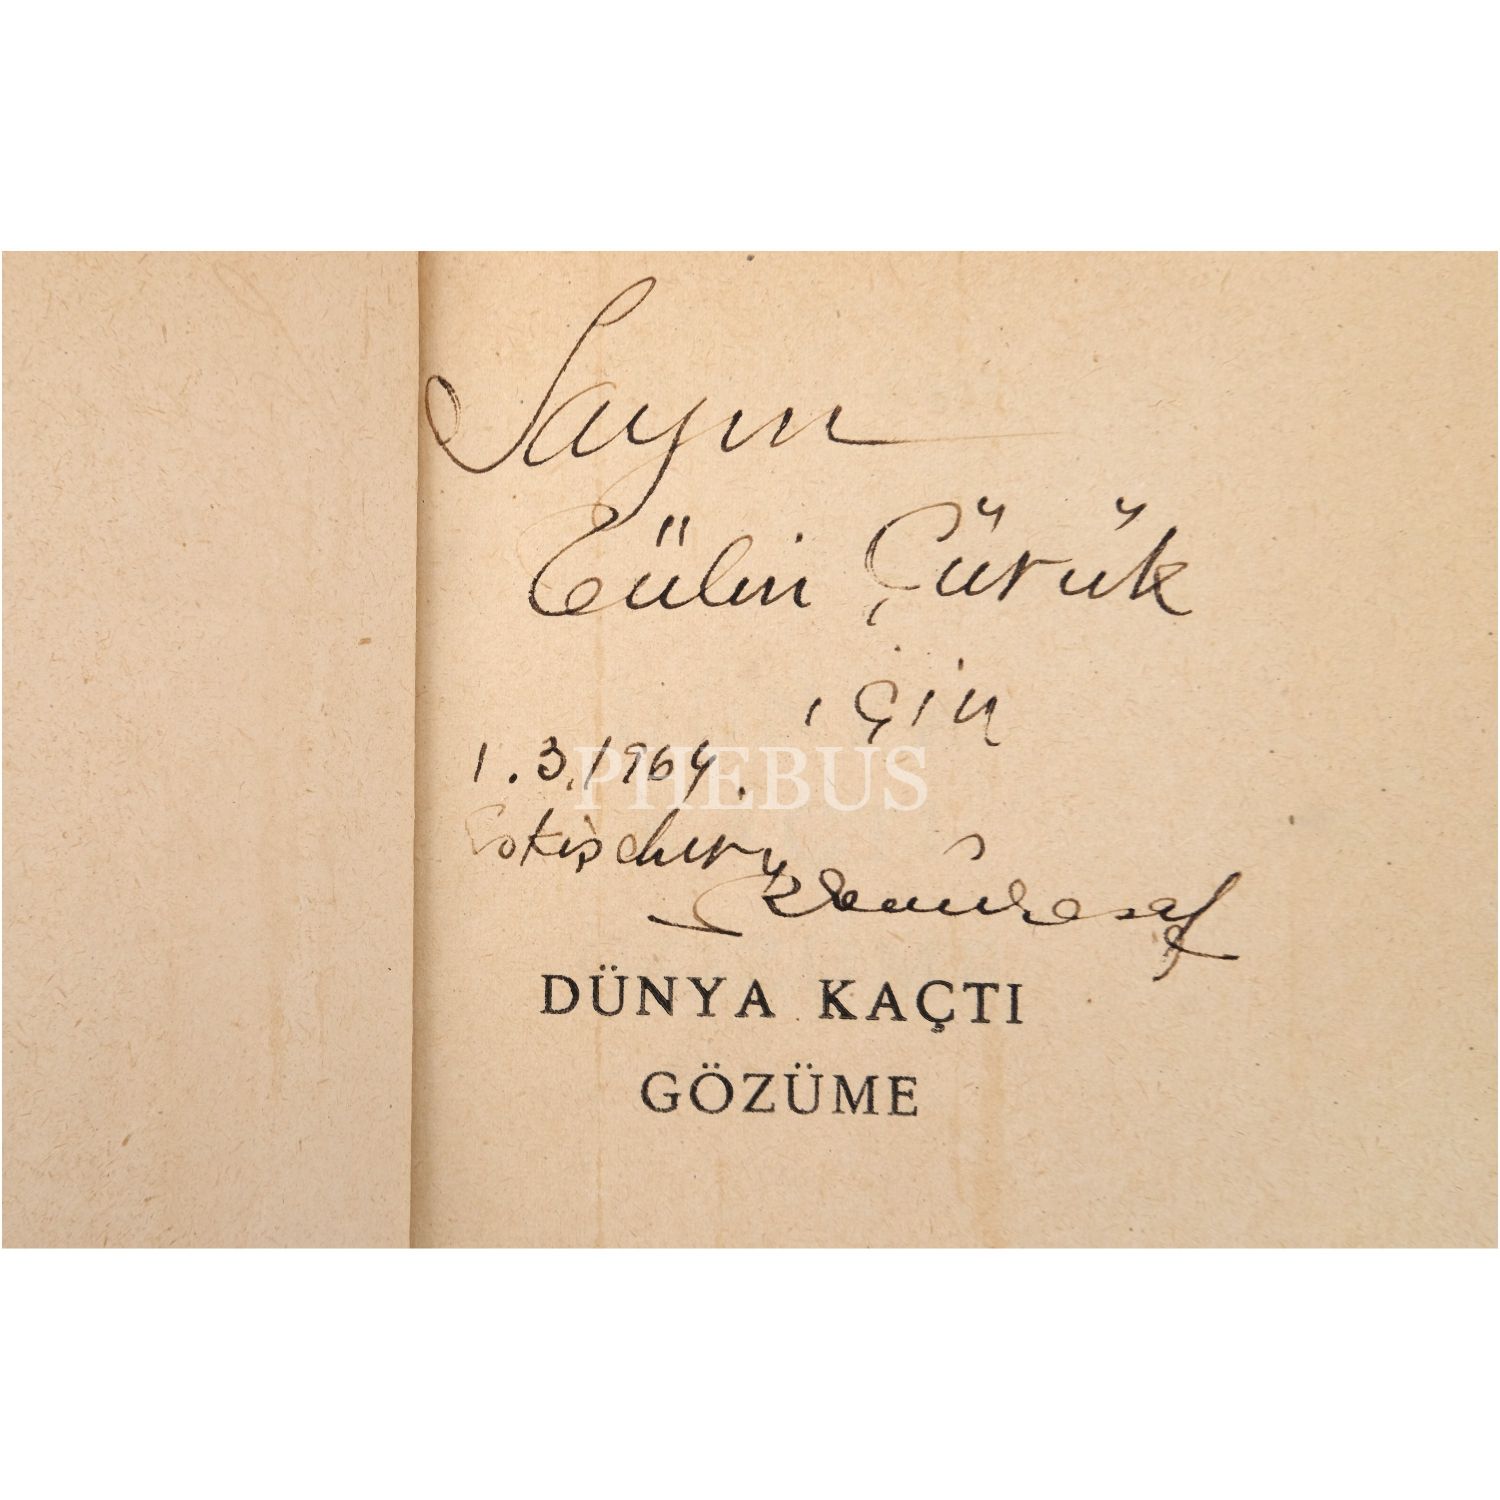 Sayın
Tülin Çürük
için
1.3.1964.
Eskişehir
PHEBUS
DÜNYA KAÇTI
GÖZÜME